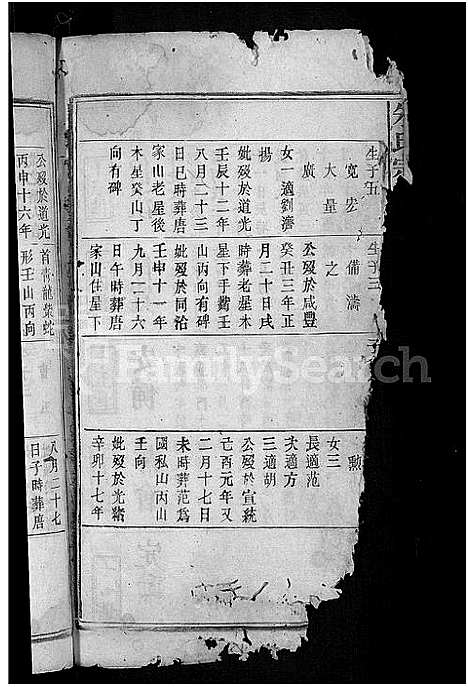 朱氏宗
生子五
寬宏
大量
廣
女一適劉濟
揚
妣歿於道光
壬辰十二年
八月二十三
日巳時葬唐
家山老屋後
木星癸山丁
向有碑
生子三
備濤
之
公歿於咸豐
癸丑三年正
月二十日戌
時葬老星木
星下手黃壬
山丙向有碑
妣歿於同治
壬申十一年
九月二十六
日午時葬唐
家山住星下
勲
女三
長適范
次適方
三適胡
公歿於宣統
己丙元年又
二月十七日
未時葬范爲
國私山丙山
壬向
妣歿於光緒
辛卯十七年
公歿於道光
丙申十六年
首青龍柴蛇
形壬山丙向
八月二十七
日子時葬唐
FamilySearch